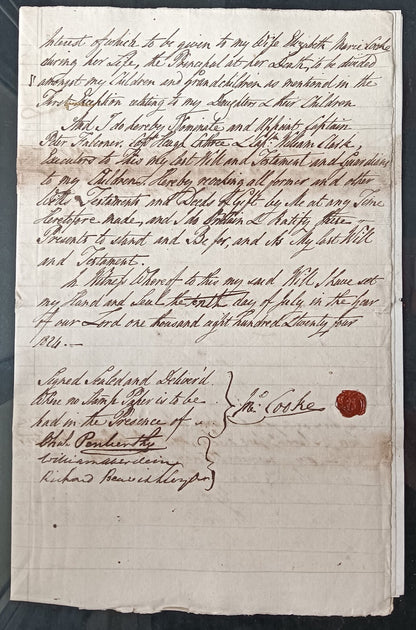 Interest of which to be given to my Wife Elizabeth Marie Cooke
during her Life, the Principal at her Death, to be divided
amongst my Children and Grandchildren as mentioned in the
first relating to my Daughter & their Children
And I do hereby Nominate and Appoint Captain
Peter Falconer, Capt Hugh & Capt William Clark
Executors to this my Last Will and Testament and Guardians
to my Children Hereby revoking all former and other
Wills Testaments and Deeds of Gift by Me at any Time
Heretofore made, and I do & Ratify these
Presents to stand and Be for, and As My last Will
and Testament.
In Witness Whereof to this my said Will I have set
my Hand and Seal the tenth day of July in the Year
of our Lord one thousand eight hundred & twenty four
1824.—
Signed Sealed and Deliver'd
Where no Stamp Paper is to be
had in the Presence of
Jno. Cooke
Penberthy
William Aberdein
Richard